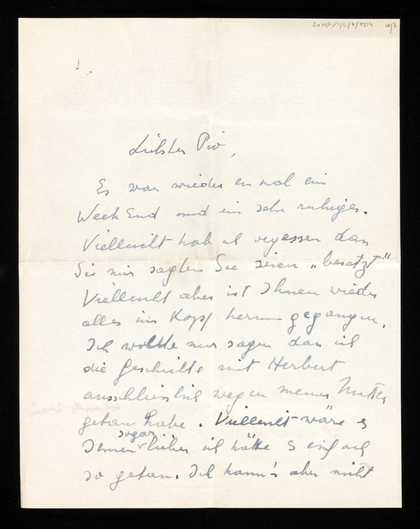 Liebster Pio,
Es war wieder einmal ein
Week End und ein sehr ruhiges.
Vielleicht hab ich vergessen dass
Sie mir sagten Sie seien „besetzt"
Vielleicht aber ist Ihnen wieder
alles im Kopf herum gegangen.
Ich wollte nur sagen dass ich
die Geschichte mit Herbert
ausschliesslich wegen meiner Mutter
getan habe. Vielleicht wäre es
Ihnen sogar lieber ich hätte es einfach
so getan. Ich kann's aber nicht